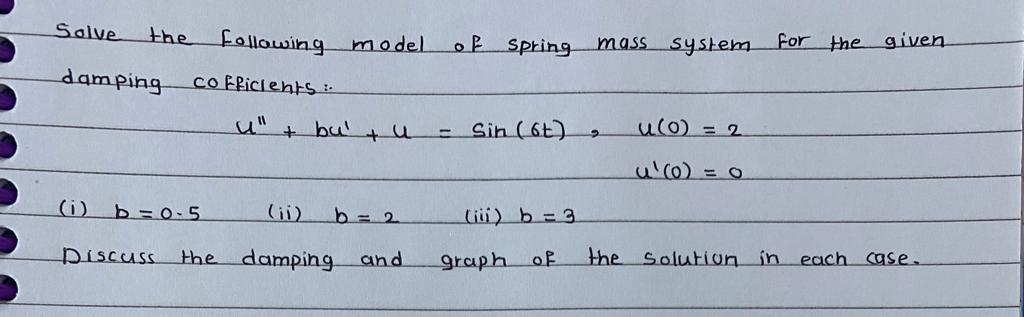 Solve the following model of spring mass system for the given
damping cofficients :-
u'' + bu' + u = sin(6t) , u(0) = 2
u'(0) = 0
(i) b = 0.5 (ii) b = 2 (iii) b = 3
Discuss the damping and graph of the solution in each case.